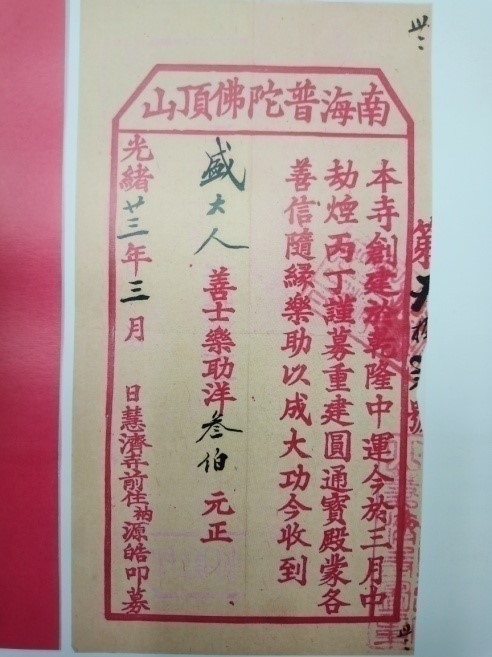 南海普陀佛頂山
第
本寺創建於乾隆中運今於三月中
劫煙丙丁謹募重建圓通寶殿蒙各
善信隨緣樂助以成大功今收到
盛大人善士樂助洋叁伯元正
光緒廿三年三月 日慧濟寺前住衲源皓叩募